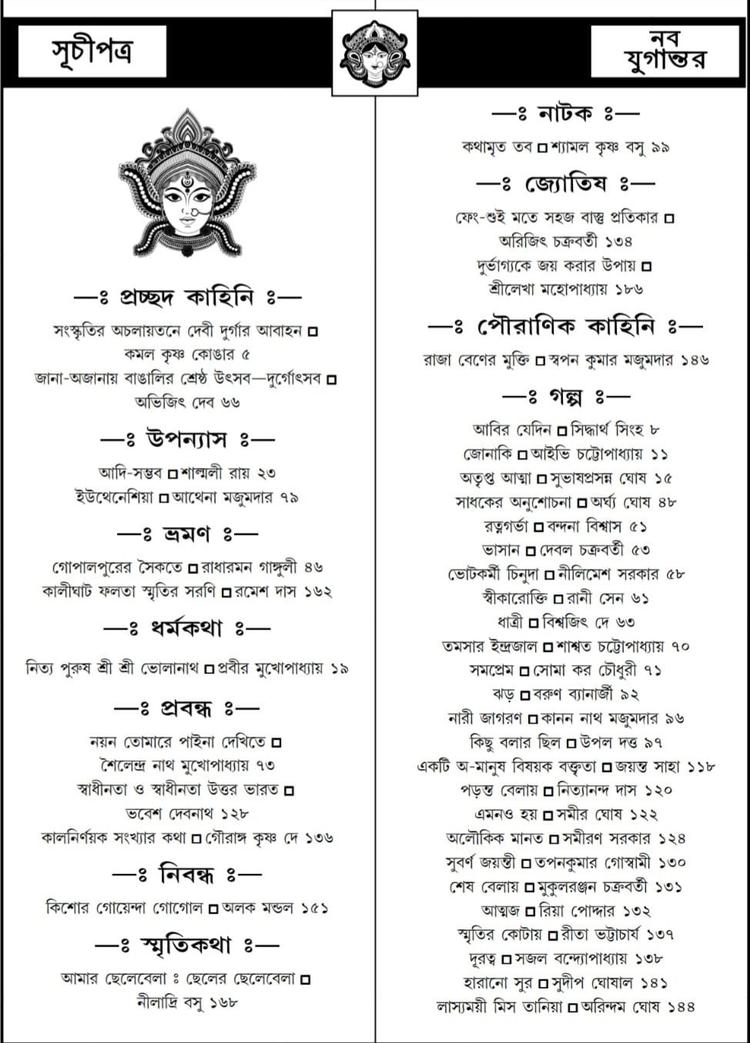 সূচীপত্র
নব
যুগান্তর
—ঃ প্রচ্ছদ কাহিনি ঃ—
সংস্কৃতির অচলায়তনে দেবী দুর্গার আবাহন □
কমল কৃষ্ণ কোঙার ৫
জানা-অজানায় বাঙালির শ্রেষ্ঠ উৎসব—দুর্গোৎসব □
অভিজিৎ দেব ৬৬
—ঃ উপন্যাস ঃ—
আদি-সম্ভব □ শাল্মলী রায় ২৩
ইউথেনেশিয়া □ আথেনা মজুমদার ৭৯
—ঃ ভ্রমণ ঃ—
গোপালপুরের সৈকতে □ রাধারমন গাঙ্গুলী ৪৬
কালীঘাট ফলতা স্মৃতির সরণি □ রমেশ দাস ১৬২
—ঃ ধর্মকথা ঃ—
নিত্য পুরুষ শ্রী শ্রী ভোলানাথ □ প্রবীর মুখোপাধ্যায় ১৯
—ঃ প্রবন্ধ ঃ—
নয়ন তোমারে পাইনা দেখিতে □
শৈলেন্দ্র নাথ মুখোপাধ্যায় ৭৩
স্বাধীনতা ও স্বাধীনতা উত্তর ভারত □
ভবেশ দেবনাথ ১২৮
কালনির্ণয়ক সংখ্যার কথা □ গৌরাঙ্গ কৃষ্ণ দে ১৩৬
—ঃ নিবন্ধ ঃ—
কিশোর গোয়েন্দা গোগোল □ অলক মন্ডল ১৫১
—ঃ স্মৃতিকথা ঃ—
আমার ছেলেবেলা ঃ ছেলের ছেলেবেলা □
নীলাদ্রি বসু ১৬৮
—ঃ নাটক ঃ—
কথামৃত তব □ শ্যামল কৃষ্ণ বসু ৯৯
—ঃ জ্যোতিষ ঃ—
ফেং-শুই মতে সহজ বাস্তু প্রতিকার □
অরিজিৎ চক্রবর্তী ১৩৪
দুর্ভাগ্যকে জয় করার উপায় □
শ্রীলেখা মহোপাধ্যায় ১৮৬
—ঃ পৌরাণিক কাহিনি ঃ—
রাজা বেণের মুক্তি □ স্বপন কুমার মজুমদার ১৪৬
—ঃ গল্প ঃ—
আবির যেদিন □ সিদ্ধার্থ সিংহ ৮
জোনাকি □ আইভি চট্টোপাধ্যায় ১১
অতৃপ্ত আত্মা □ সুভাষপ্রসন্ন ঘোষ ১৫
সাধকের অনুশোচনা □ অর্ঘ্য ঘোষ ৪৮
রত্নগর্ভা □ বন্দনা বিশ্বাস ৫১
ভাসান □ দেবল চক্রবর্তী ৫৩
ভোটকর্মী চিনুদা □ নীলিমেশ সরকার ৫৮
স্বীকারোক্তি □ রানী সেন ৬১
ধাত্রী □ বিশ্বজিৎ দে ৬৩
তমসার ইন্দ্রজাল □ শাশ্বত চট্টোপাধ্যায় ৭০
সমপ্রেম □ সোমা কর চৌধুরী ৭১
ঝড় □ বরুণ ব্যানার্জী ৯২
নারী জাগরণ □ কানন নাথ মজুমদার ৯৬
কিছু বলার ছিল □ উপল দত্ত ৯৭
একটি অ-মানুষ বিষয়ক বক্তৃতা □ জয়ন্ত সাহা ১১৮
পড়ন্ত বেলায় □ নিত্যানন্দ দাস ১২০
এমনও হয় □ সমীর ঘোষ ১২২
অলৌকিক মানত □ সমীরণ সরকার ১২৪
সুবর্ণ জয়ন্তী □ তপনকুমার গোস্বামী ১৩০
শেষ বেলায় □ মুকুলরঞ্জন চক্রবর্তী ১৩১
আত্মজ □ রিয়া পোদ্দার ১৩২
স্মৃতির কোটায় □ রীতা ভট্টাচার্য ১৩৭
দূরত্ব □ সজল বন্দ্যোপাধ্যায় ১৩৮
হারানো সুর □ সুদীপ ঘোষাল ১৪১
লাস্যময়ী মিস তানিয়া □ অরিন্দম ঘোষ ১৪৪